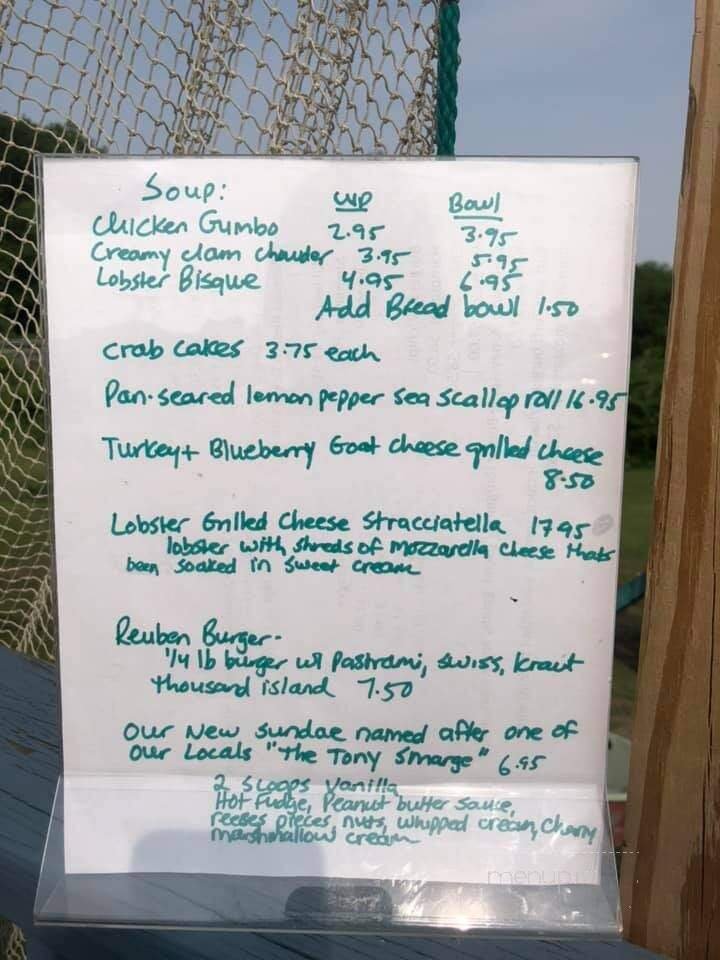 Soup: cup Bowl
Chicken Gumbo 2.95 3.95
Creamy clam chowder 3.95 5.95
Lobster Bisque 4.95 6.95
Add Bread bowl 1.50
Crab cakes 3.75 each
Pan-seared lemon pepper sea scallop roll 16.95
Turkey + Blueberry Goat cheese grilled cheese
8.50
Lobster Grilled Cheese Stracciatella 17.95
lobster with shreds of mozzarella cheese thats
been soaked in sweet cream
Reuben Burger-
1/4 lb burger w/ Pastrami, swiss, kraut
thousand island 7.50
Our New Sundae named after one of
Our Locals "The Tony Smarge" 6.95
2 scoops Vanilla
Hot Fudge, Peanut butter sauce,
reeses pieces, nuts, whipped cream, Cherry
marshmallow cream